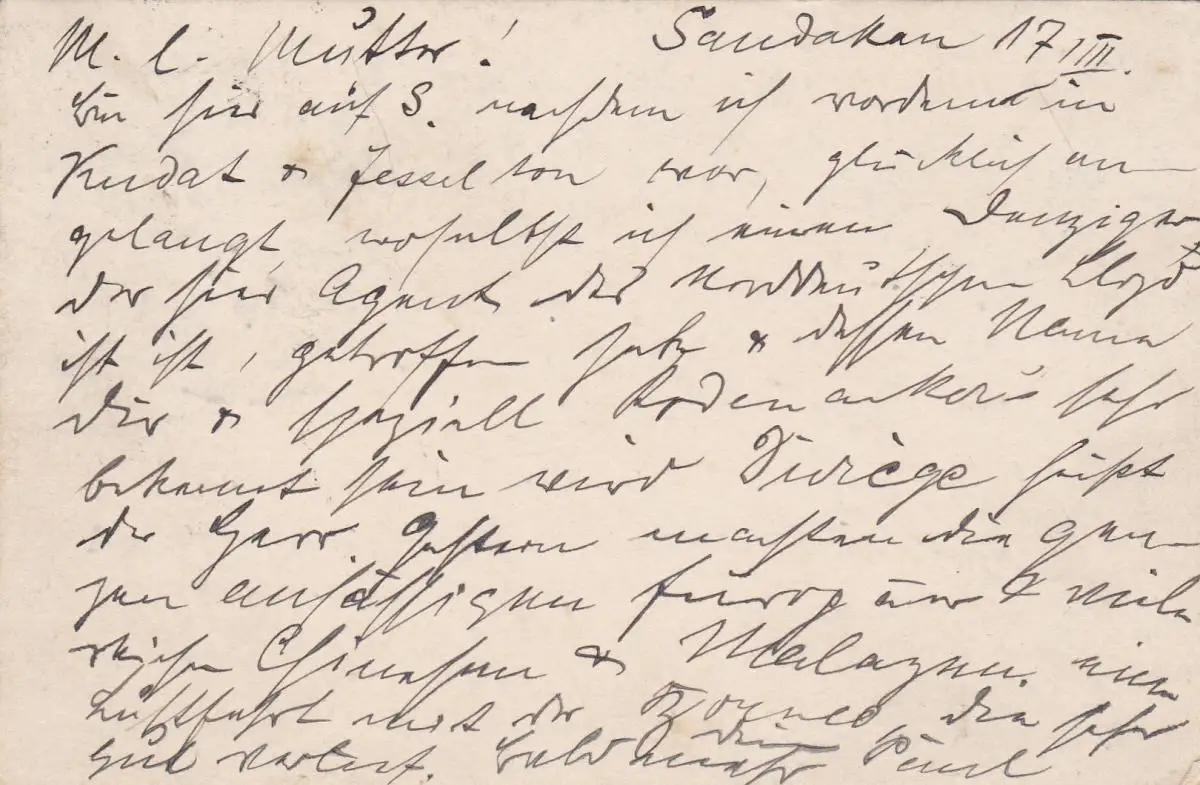 M. l. Mutter! Sandakan 17/III.
Bin hier auf S. nachdem ich vordem in
Kudat & Jesselton war, glücklich an
gelangt, woselbst ich einen Danziger
der hier Agent des Norddeutschen Lloyd
ist ist, getroffen habe & dessen Name
Dir & speziell Rodenacker's sehr
bekannt sein wird heißt
der Herr. Gestern machten die gan
zen ansässigen Europäer & viele
Chinesen & Malayen eine
Lustfahrt mit der Borneo, die sehr
gut verlief. Bald mehr Dein Paul